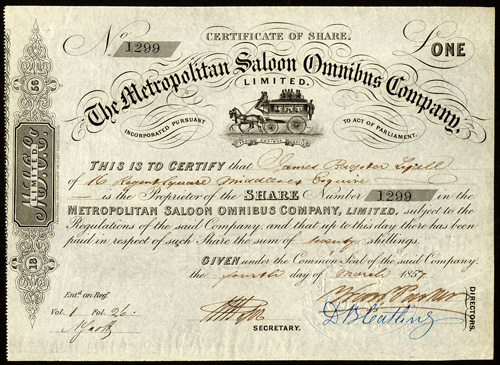 CERTIFICATE OF SHARE.
No. 1299
£ ONE
The Metropolitan Saloon Omnibus Company,
LIMITED.
INCORPORATED PURSUANT TO ACT OF PARLIAMENT.
THIS IS TO CERTIFY that James Lyell
of 16 Regent Square Middlesex Esquire
is the Proprietor of the SHARE Number 1299 in the
METROPOLITAN SALOON OMNIBUS COMPANY, LIMITED, subject to the
Regulations of the said Company; and that up to this day there has been
paid in respect of such Share the sum of twenty shillings.
GIVEN under the Common Seal of the said Company,
the fourth day of March 1857
Entd. on Regr.
Vol. 1 Fol. 26.
SECRETARY.
DIRECTORS.
LIMITED